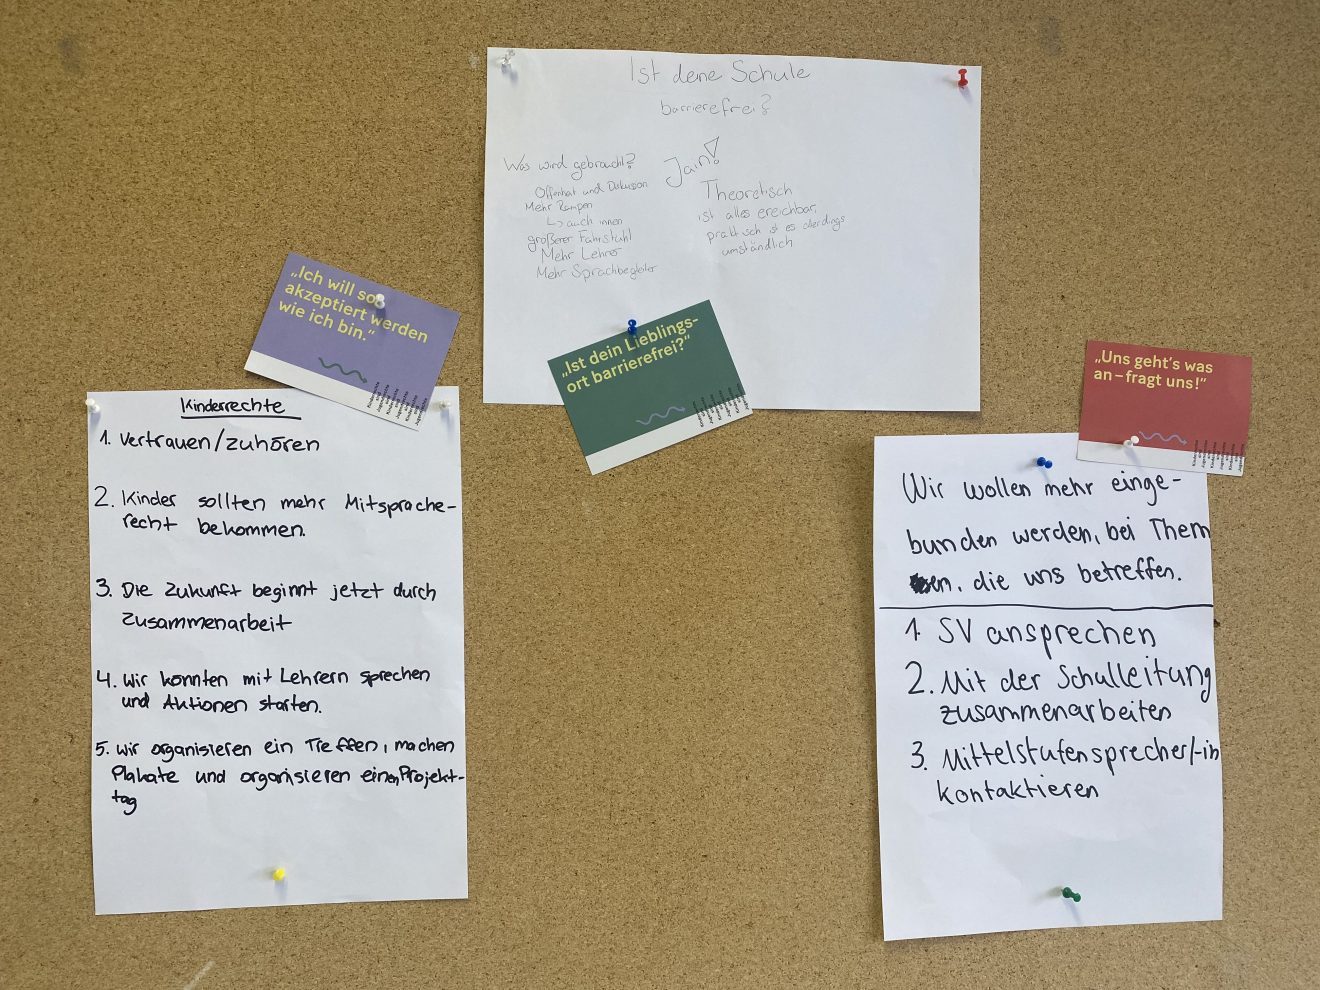 Ist deine Schule
barrierefrei?
Was wird gebraucht?
Offenheit und Diskussion
Mehr Rampen
↳ auch innen
größerer Fahrstuhl
Mehr Lehrer
Mehr Sprachbegleiter
Jain!
Theoretisch
ist alles ereichbar,
praktisch ist es allerdings
umständlich
„Ich will so
akzeptiert werden
wie ich bin.“
„Ist dein Lieblings-
ort barrierefrei?“
„Uns geht's was
an – fragt uns!“
Kinderrechte
1. Vertrauen/zuhören
2. Kinder sollten mehr Mitsprache-
recht bekommen.
3. Die Zukunft beginnt jetzt durch
Zusammenarbeit
4. Wir könnten mit Lehrern sprechen
und Aktionen starten.
5. Wir organisieren ein Treffen, machen
Plakate und organisieren einen Projekt-
tag
Wir wollen mehr einge-
bunden werden, bei Them
en, die uns betreffen.
1. SV ansprechen
2. Mit der Schulleitung
zusammenarbeiten
3. Mittelstufensprecher/-in
kontaktieren